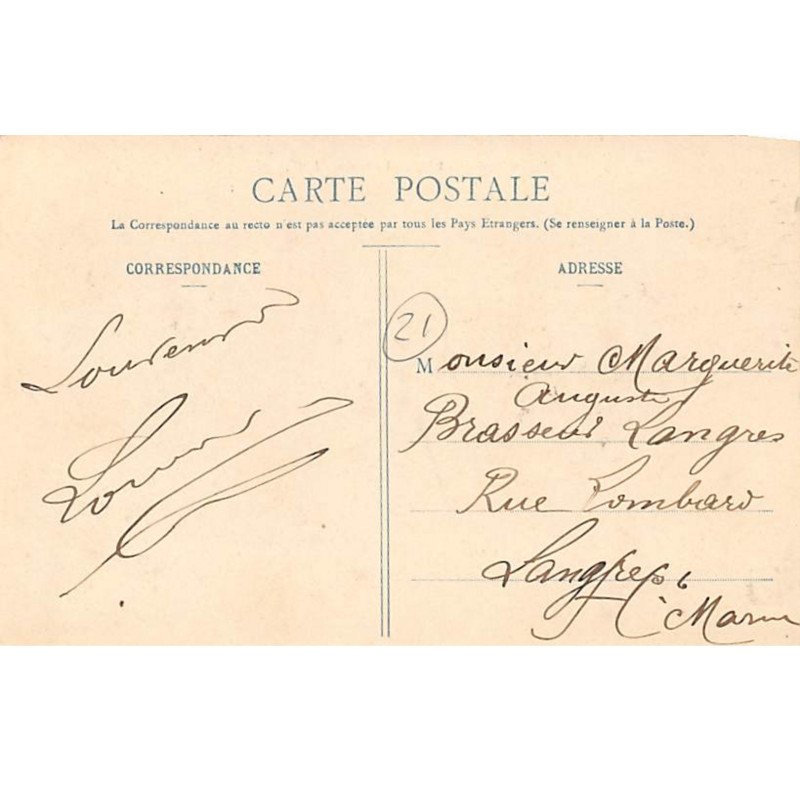 CARTE POSTALE
La Correspondance au recto n'est pas acceptee par tous les Pays Etrangers. (Se renseigner à la Poste.)
CORRESPONDANCE
Souvenir
ADRESSE
21
Monsieur Marguerite
Auguste
Brasseur Langres
Rue Lombard
Langres
Marne